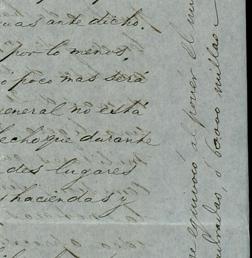 mas ante dicho.
por lo menos,
ó poco mas será
general no está
hecho que durante
de los lugares
s haciendas y
se equivocó al poner el
ó 6000 millas